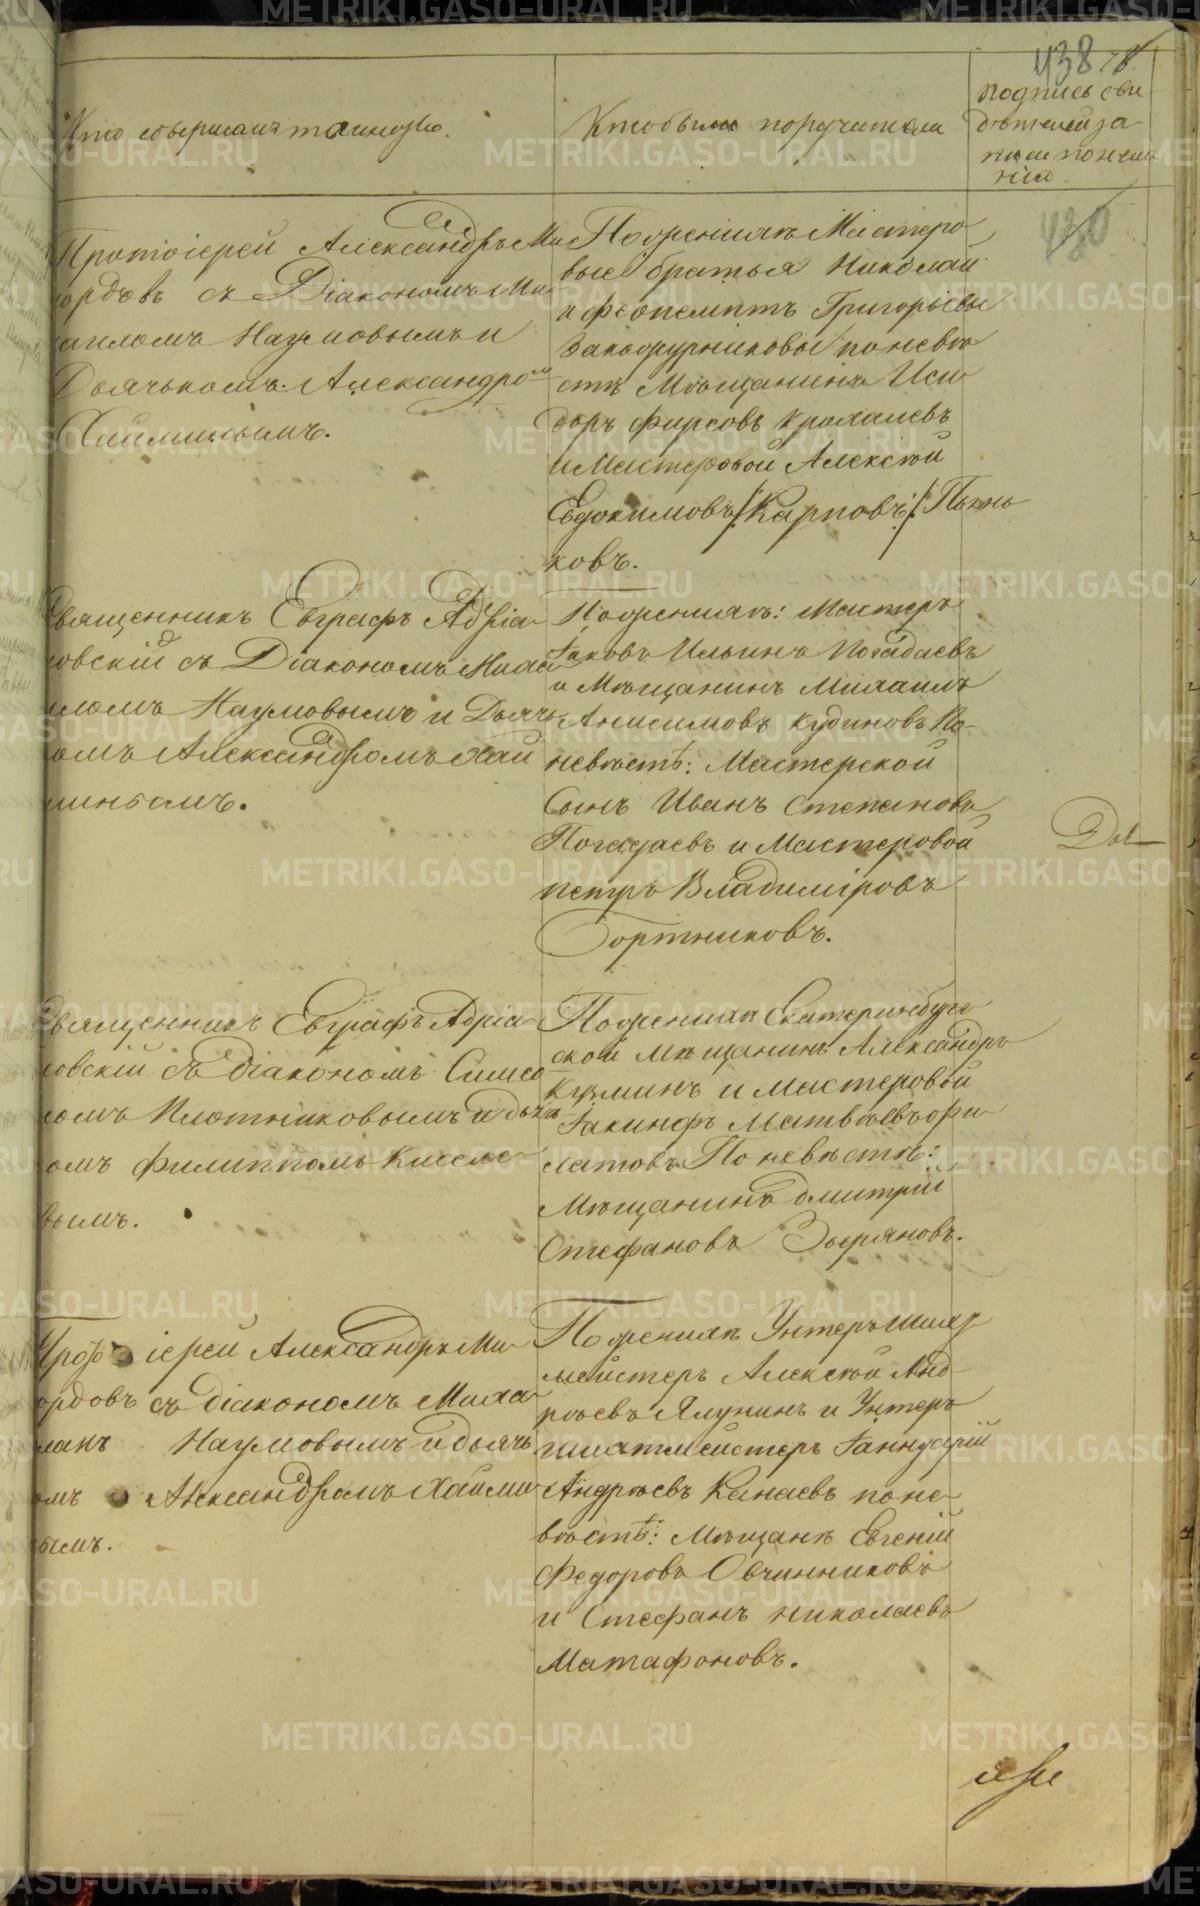 438
Кто совершалъ таинство.
Кто были поручители
подпись сви
дѣтелей за
писи по жела
нію.
430
Протоіерей Александръ Ми
юрдовъ съ Діакономъ Ми
хаиломъ Наумовымъ и
Дьячькомъ Александро
Хайминымъ.
По женихѣ Мастеро
вые братья Николай
и Феопемптъ Григорьевы
по невѣ
стѣ Мѣщанинъ Иси
доръ Фирсовъ Крохалевъ
и Мастеровой Алексѣй
Евдокимовъ /Карповъ/ Пьянь
ковъ.
Священникъ Евграфъ Адріа
новскій съ Діакономъ Миха
иломъ Наумовымъ и Дьячь
омъ Александромъ Хай
минымъ.
По женихѣ: Мастеръ
Іаковъ Ильинъ Погадаевъ
и Мѣщанинъ Михаилъ
Анисимовъ Кудиновъ По
невѣстѣ: Мастерской
Сынъ Иванъ Степановъ
Погадаевъ и Мастеровой
Петръ Владиміровъ
Портниковъ.
Священникъ Евграфъ Адріа
новскій съ Діакономъ Симео
номъ Плотниковымъ и дьячь
омъ Филиппомъ Киселе
вымъ.
По женихѣ Екатеринбург
ской мѣщанинъ Александръ
Кузминъ и мастеровой
Іакинфъ Матвѣевъ Фи
латовъ По невѣстѣ:
Мѣщанинъ Дмитрій
Стефановъ Зыряновъ.
Протоіерей Александръ Ми
юрдовъ съ діакономъ Миха
Наумовымъ и дьячь
омъ Александромъ Хайми
нымъ.
По женихѣ Унтеръ шихт
мейстеръ Алексѣй Анд
рѣевъ Ялунинъ и Унтеръ
шихтмейстеръ Іаннуарій
Андрѣевъ Канаевъ по не
вѣстѣ: Мѣщане Евгеній
Федоровъ Овчинниковъ
и Стефанъ Николаевъ
Матафоновъ.